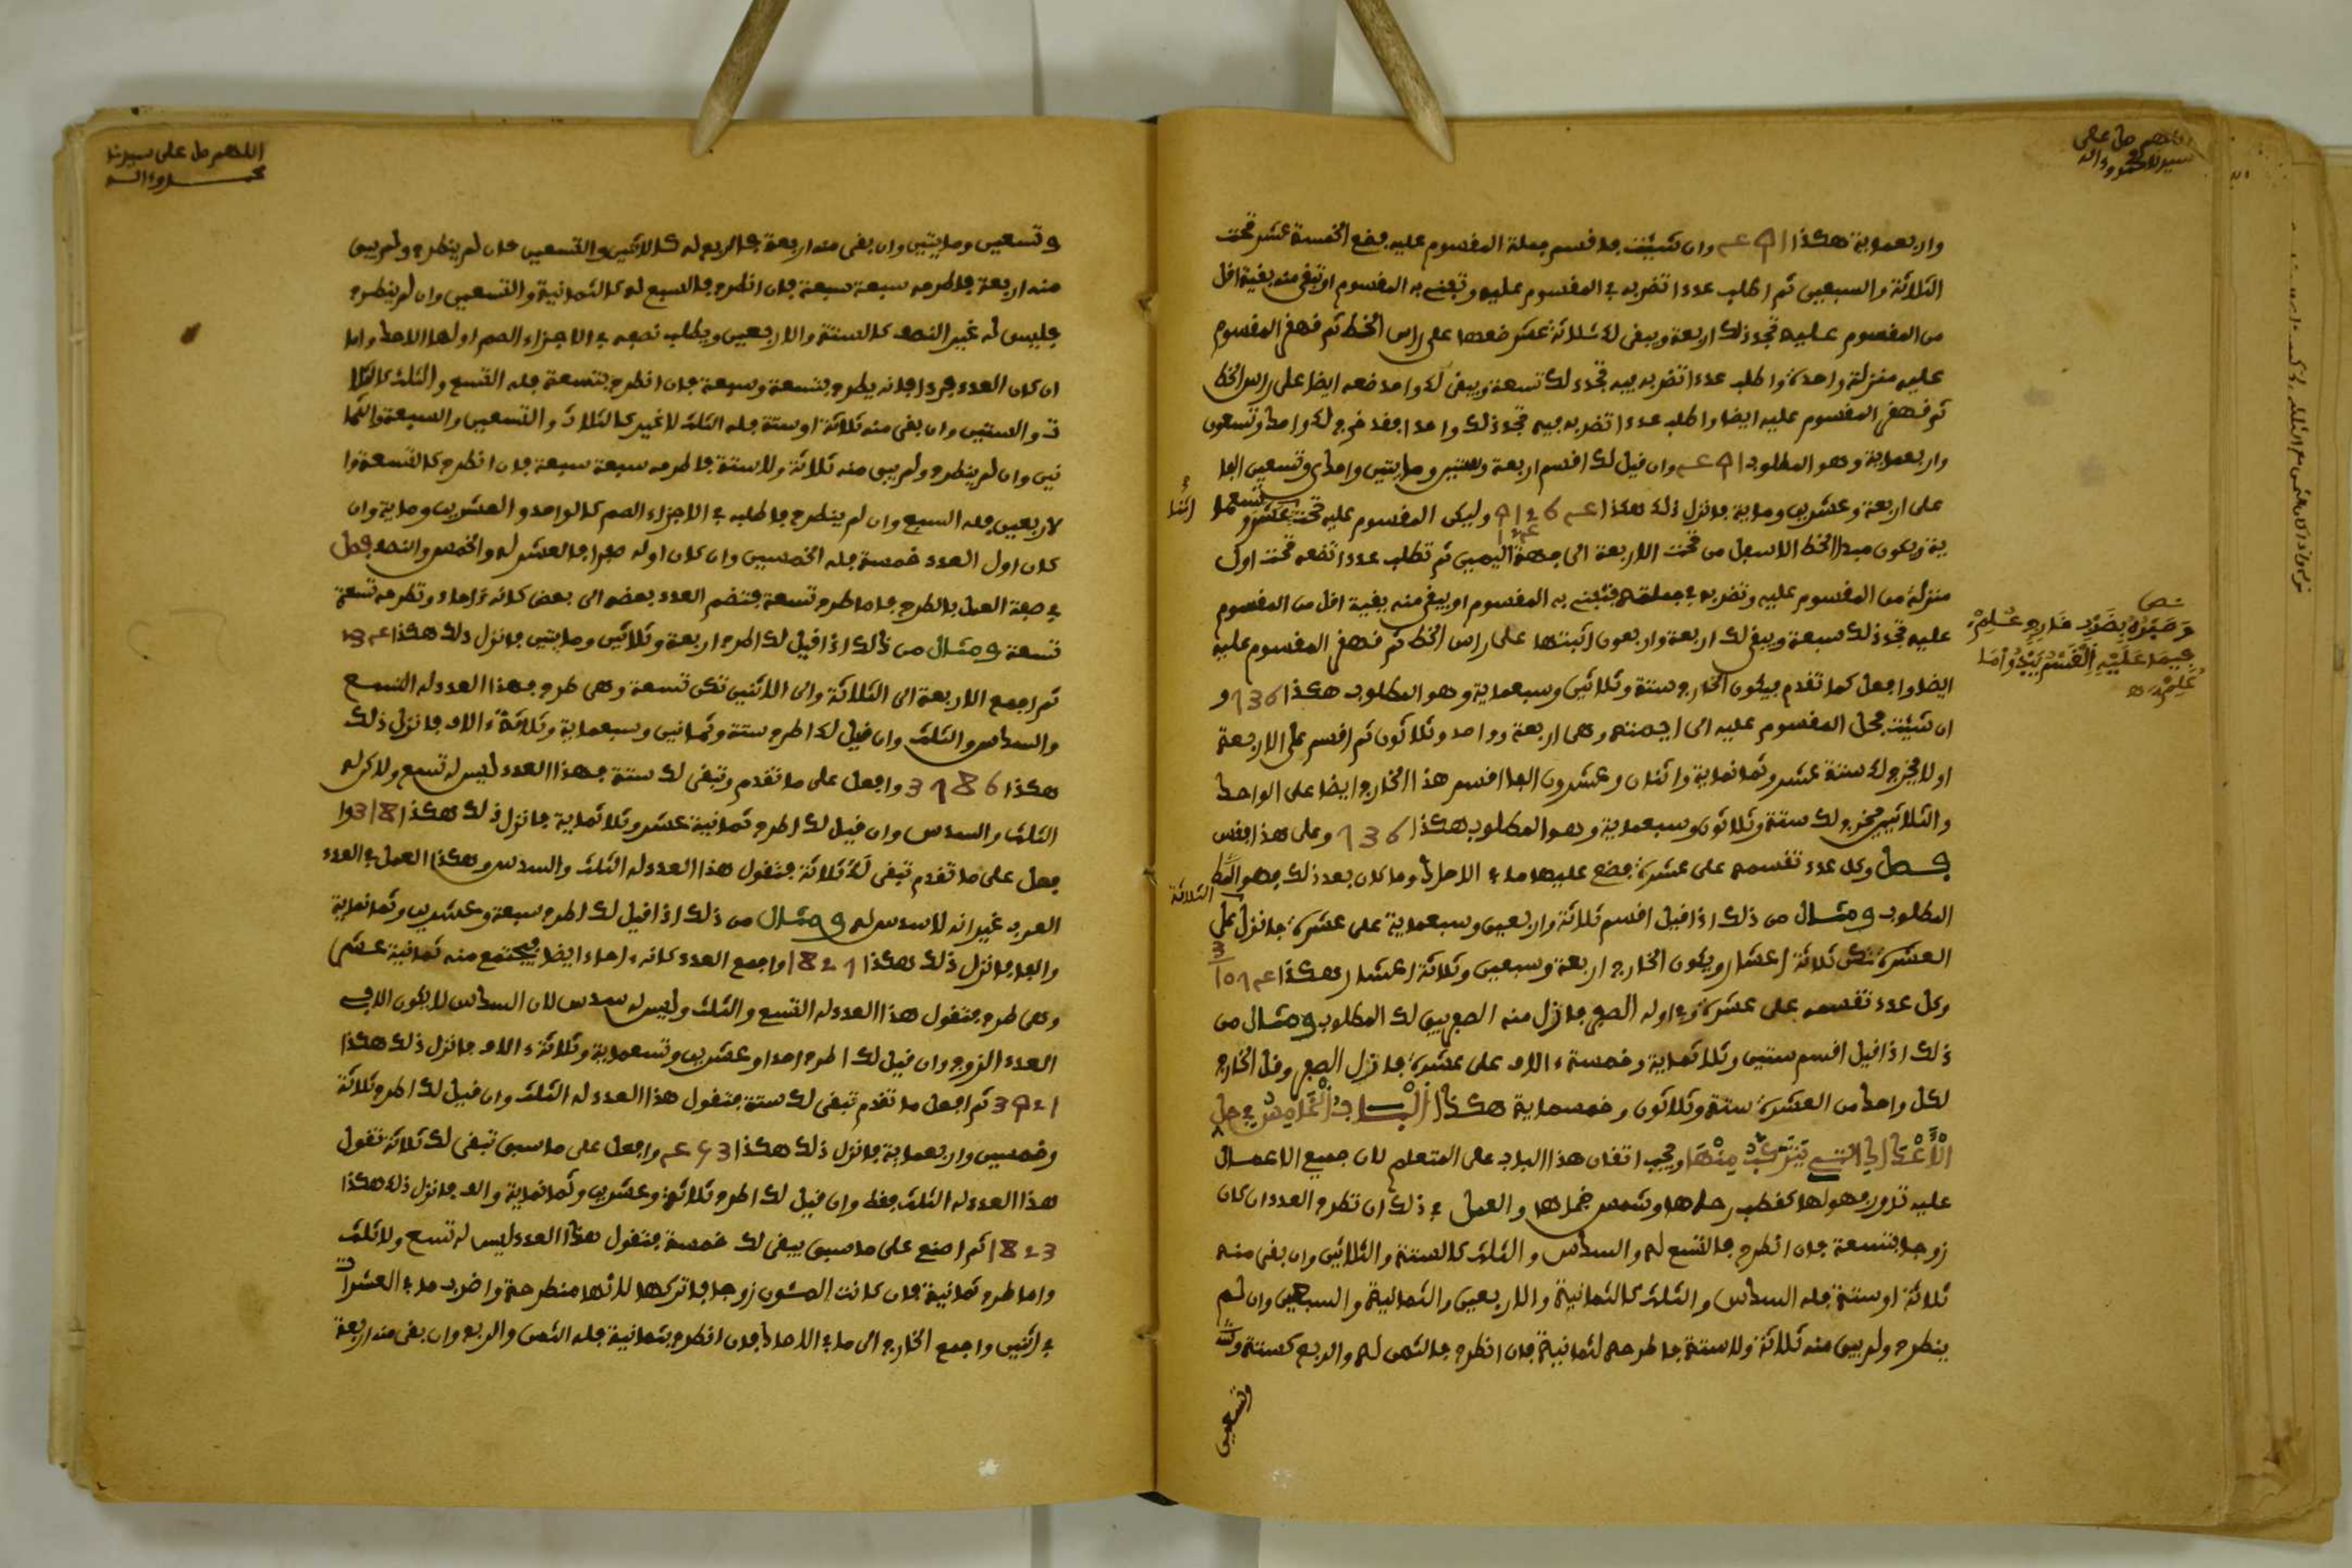 اللهم صل على
سيدنا محمد وءاله
واربعماية هكذا 491 وان شئت فاقسم جملة المقسوم عليه فضع الخمسة عشر تحت
الثلاثة والسبعين ثم اطلب عددا تضربه في المقسوم عليه وتفني به المقسوم او تبقى منه بقية اقل
من المقسوم عليه تجد ذلك اربعة ويبقى لك ثلاثة عشر ضعها على راس الخط ثم قهقر المقسوم
عليه منزلة واحدة واطلب عددا تضربه فيه تجد ذلك تسعة ويبقى لك واحد ضعه ايضا على راس الخط
ثم قهقر المقسوم عليه ايضا واطلب عددا تضربه فيه تجد ذلك واحدا فقد خرج لك واحد وتسعون
واربعماية وهو المطلوب 491 وان قيل لك اقسم اربعة وستين ومايتين واحدى وتسعين الفا
على اربعة وعشرين وماية فانزل ذلك هكذا 91264 وليكن المقسوم عليه تحت
ية ويكون مبدا الخط الاسفل من تحت الاربعة الى جهة اليمين ثم تطلب عددا تضعه تحت اول
منزلة من المقسوم عليه وتضربه في جملته فتفني به المقسوم او يبقى منه بقية اقل من المقسوم
عليه تجد ذلك سبعة ويبقى لك اربعة واربعون اثبتها على راس الخط ثم قهقر المقسوم عليه
ايضا وافعل كما تقدم فيكون الخارج ستة وثلاثين وسبعماية وهو المطلوب هكذا 736 و
ان شئت فحل المقسوم عليه الى ايمته وهي اربعة وواحد وثلاثون ثم اقسم على الاربعة
اولا يخرج لك ستة عشر وثمانماية واثنان وعشرون الفا اقسم هذا الخارج ايضا على الواحد
والثلاثين يخرج لك ستة وثلاثون وسبعماية وهو المطلوب هكذا 736 وعلى هذا فقس
فصل وكل عدد تقسمه على عشرة فضع عليها ما في الاحاد وما كان بعد ذلك فهو
المطلوب ومثال من ذلك اذا قيل اقسم ثلاثة واربعين وسبعماية على عشرة فانزل على
الثلاثة
العشرة تكن ثلاثة اعشار ويكون الخارج اربعة وسبعين وثلاثة اعشار هكذا
وكل عدد تقسمه على عشرة وفي اوله الصفر فازل منه الصفر يبق لك المطلوب ومثال من
ذلك اذا قيل اقسم ستين وثلاثماية وخمسة ءالاف على عشرة فازل الصفر وقل الخارج
لكل واحد من العشرة ستة وثلاثون وخمسماية هكذا الباب الخامس في حل
الأعداد التي تتركب منها ويجب اتقان هذا الباب على المتعلم لان جميع الاعمال
عليه تدور فهو لها كقطب رحاها وشمس ضحاها والعمل في ذلك ان تطرح العدد ان كان
زوجا بتسعة فان انطرح فالتسع له والسدس والثلث كالستة والثلاثين وان بقى منه
ثلاثة او ستة فله السدس والثلث كالثمانية والاربعين والثمانية والسبعين وان لم
ينطرح ولم يبق منه ثلاثة ولا ستة فاطرحه لثمانية فان انطرح فالثمن له والربع كستة و
وتسعين
اللهم صل على سيدنا
محمد وءاله
وتسعين ومايتين وان بقى منه اربعة فالربع له كالاثنين والتسعين فان لم ينطرح ولم يبق
منه اربعة فاطرحه سبعة سبعة فان انطرح فالسبع له كالثمانية والتسعين وان لم ينطرح
فليس له غير النصف كالستة والاربعين ويطلب نصفه في الاجزاء الصم اولها الاحد واما
ان كان العدد فردا فانه يطرح بتسعة وسبعة فان انطرح بتسعة فله التسع والثلث كالثلا
ث والستين وان بقى منه ثلاثة او ستة فله الثلث لا غير كالثلاث والتسعين والسبعة والثما
نين وان لم ينطرح ولم يبق منه ثلاثة ولا ستة فاطرحه سبعة سبعة فان انطرح كالتسعة وا
لاربعين فله السبع وان لم ينطرح فاطلبه في الاجزاء الصم كالواحد والعشرين وماية وان
كان اول العدد خمسة فله الخمس وان كان اوله صفرا فالعشر له والخمس والنصف فصل
في صفة العمل بالطرح فاما طرح تسعة فتضم العدد بعضه الى بعض كانه ءاحاد وتطرحه تسعة
تسعة ومثال من ذلك اذا قيل لك اطرح اربعة وثلاثين ومايتين فانزل ذلك هكذا 234
ثم اجمع الاربعة الى الثلاثة والى الاثنين تكن تسعة وهي طرح فهذا العدد له التسع
والسدس والثلث وان قيل لك اطرح ستة وثمانين وسبعماية وثلاثة ءالاف فانزل ذلك
هكذا 3786 وافعل على ما تقدم وتبقى لك ستة فهذا العدد ليس له تسع ولاكن له
الثلث والسدس وان قيل لك اطرح ثمانية عشر وثلاثماية فانزل ذلك هكذا 318 وا
فعل على ما تقدم تبقى لك ثلاثة فتقول هذا العدد له الثلث والسدس وهكذا العمل في العدد
الفرد غير انه لا سدس له ومثال من ذلك اذا قيل لك اطرح سبعة وعشرين وثمانماية
والفا فانزل ذلك هكذا 1827 واجمع العدد كانه ءاحاد ايضا فيجتمع منه ثمانية عشر
وهي طرح فتقول هذا العدد له التسع والثلث وليس له سدس لان السدس لا يكون الا في
العدد الزوج وان قيل لك اطرح احدا وعشرين وتسعماية وثلاثة ءالاف فانزل ذلك هكذا
3921 ثم افعل ما تقدم تبقى لك ستة فتقول هذا العدد له الثلث وان قيل لك اطرح ثلاثة
وخمسين واربعماية فانزل ذلك هكذا 453 وافعل على ما سبق تبقى لك ثلاثة تقول
هذا العدد له الثلث فقط وان قيل لك اطرح ثلاثة وعشرين وثمانماية والف فانزل ذلك هكذا
1823 ثم اصنع على ما سبق يبقى لك خمسة فتقول هذا العدد ليس له تسع ولا ثلث
واما طرح ثمانية فان كانت المئون زوجا فاتركها لانها منطرحة واضرب ما في العشرات
في اثنين واجمع الخارج الى ما في الاحاد فان انطرح بثمانية فله الثمن والربع وان بقى منه اربعة